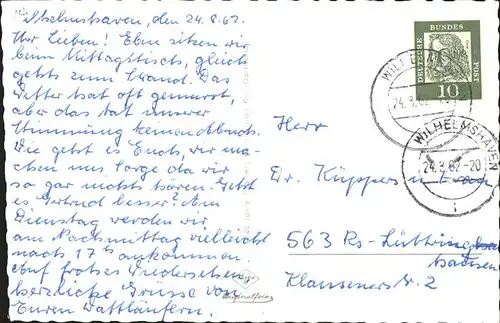 Wilhelmshaven, den 24.8.62.
Ihr Lieben! Eben sitzen wir
beim Mittagstisch, gleich
gehts zum Strand. Das
Wetter hat oft gemurrt,
aber das tat unserer
Stimmung keinen Abbruch.
Wie geht es Euch, wir ma-
chen uns Sorge da wir
so gar nichts hören. Geht
es Gertrud besser? Am
Dienstag werden wir
am Nachmittag vielleicht
nach 17 h ankommen.
Auf frohes Wiedersehen
herzliche Grüsse von
Euren Wattläufern.
DEUTSCHE
BUNDES
POST
10
WILHELMSHAVEN
24.8.62-20
Herr
Dr. Küppers u. Frau
563 Rs-Lüttring-
hausen
Klausener Str. 2
Originalfoto